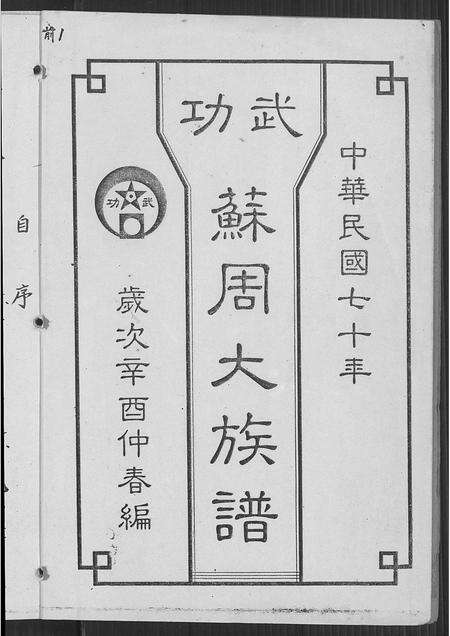 前1
中華民國七十年
武功
蘇周大族譜
武功
歲次辛酉仲春編
自序